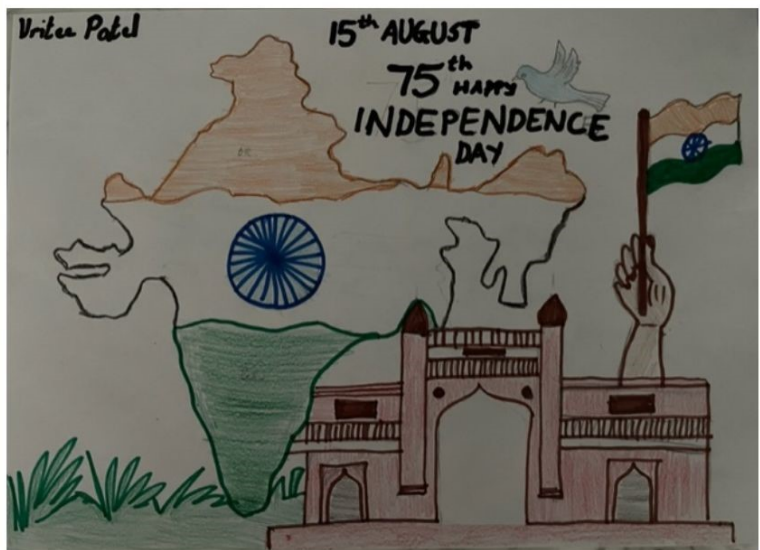 Vritee Patel
15th AUGUST
75th HAPPY
INDEPENDENCE
DAY